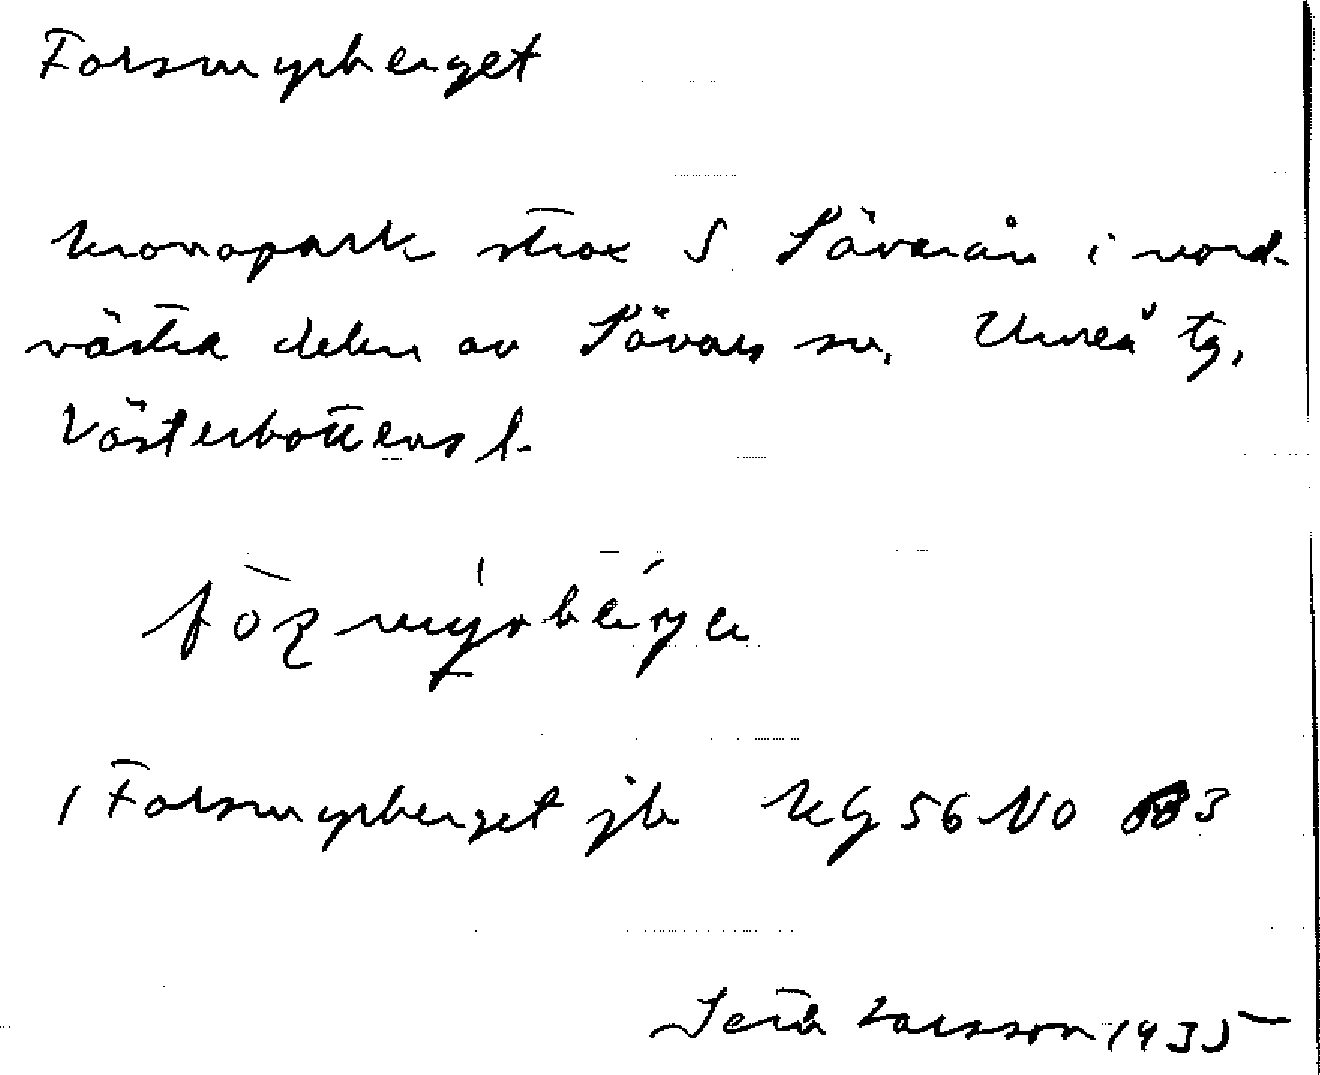 Forsmyrberget
Kronopark strax S Sävarån i nord-
västra delen av Sävars sn, Umeå tg,
Västerbottens l.
/ Forsmyrberget jb KG 56 NO 3
Larsson 1935